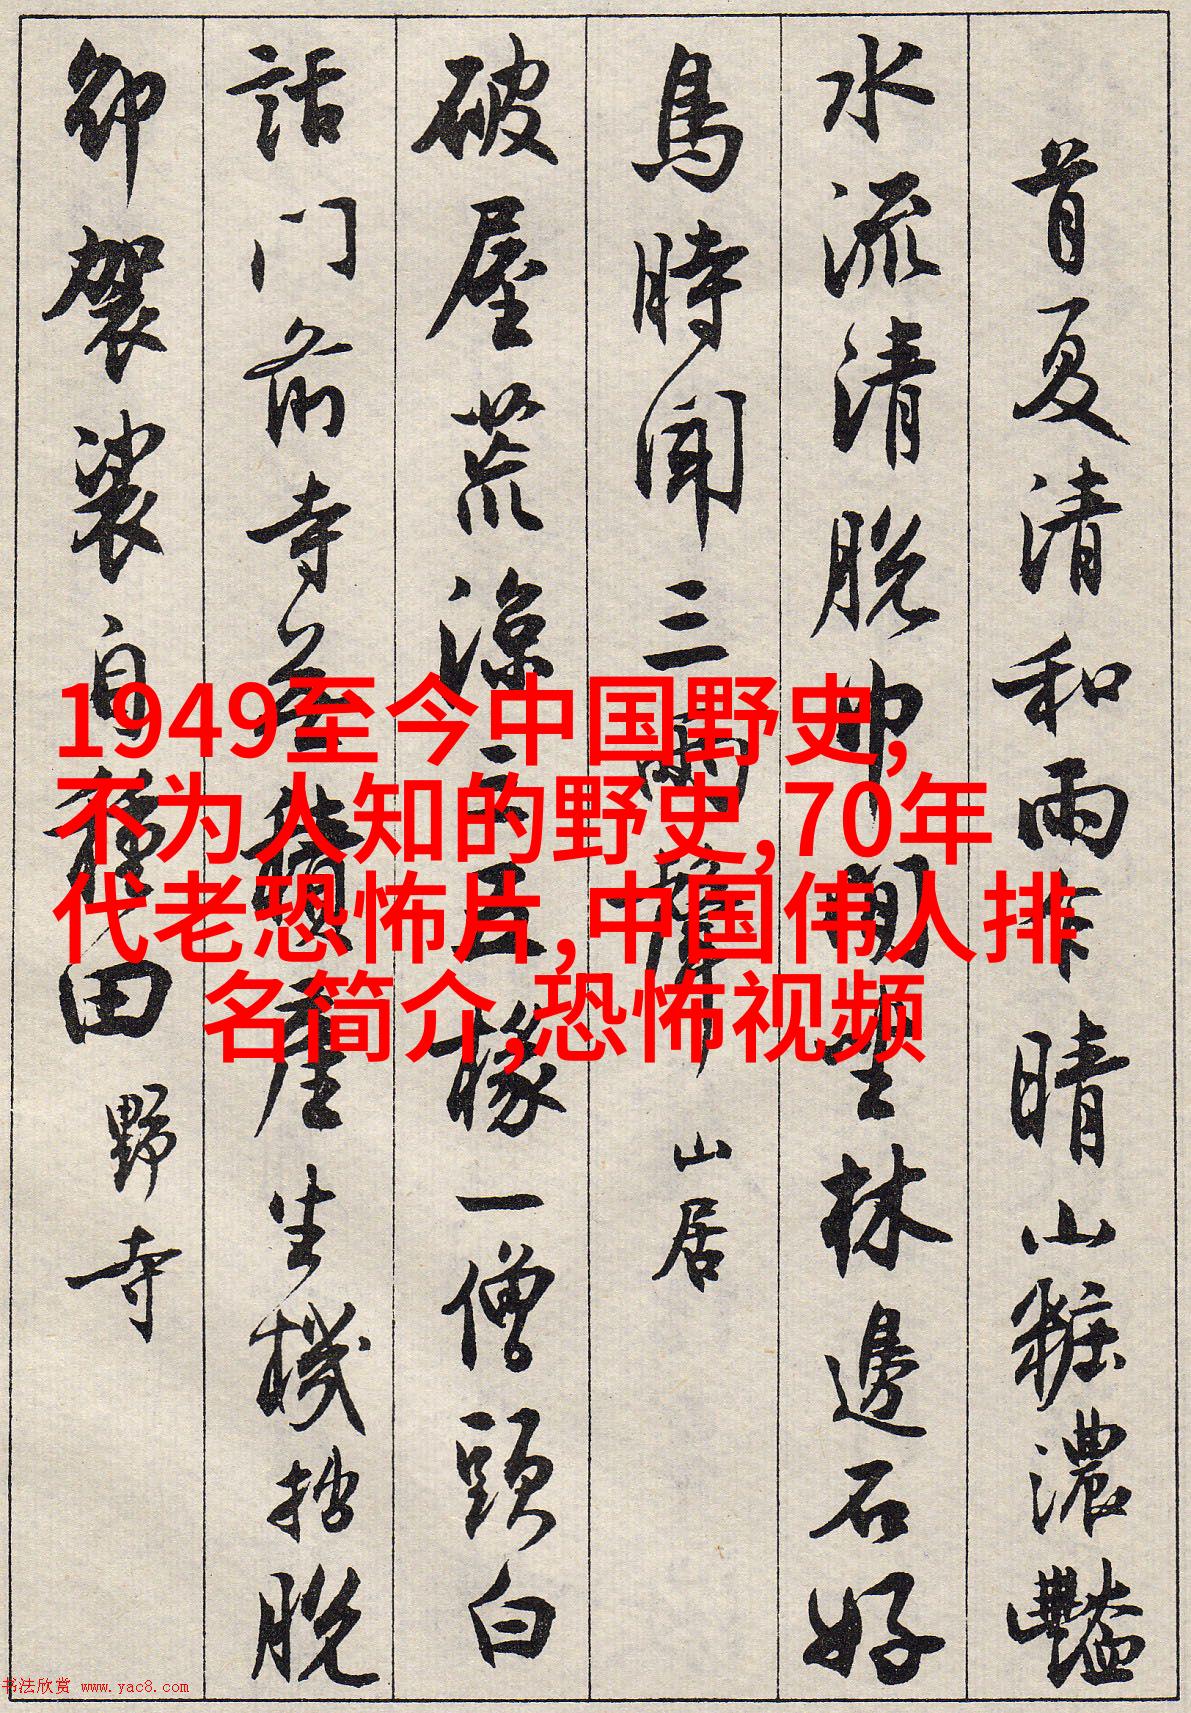 首夏清和雨乍晴山粧濃豔
水流清脫巾閒坐林邊石好
鳥時聞三兩聲 山居
破屋荒涼三五椽一僧頭白
話门前寺積產生機拙脫
卻袈裟自種田 野寺
1949至今中国野史,
不为人知的野史,70年
代老恐怖片,中国伟人排
名简介,恐怖视频
书法欣赏 www.yac8.com